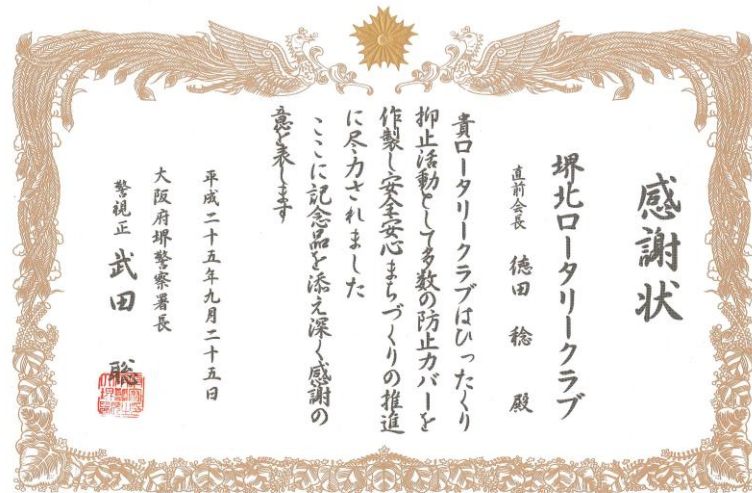 感謝状
堺北ロータリークラブ
直前会長 徳田 稔 殿
貴ロータリークラブはひったくり
抑止活動として多数の防止カバーを
作製し安全安心まちづくりの推進
に尽力されました
ここに記念品を添え深く感謝の
意を表します
平成二十五年九月二十五日
大阪府堺警察署長
警視正 武田 聡